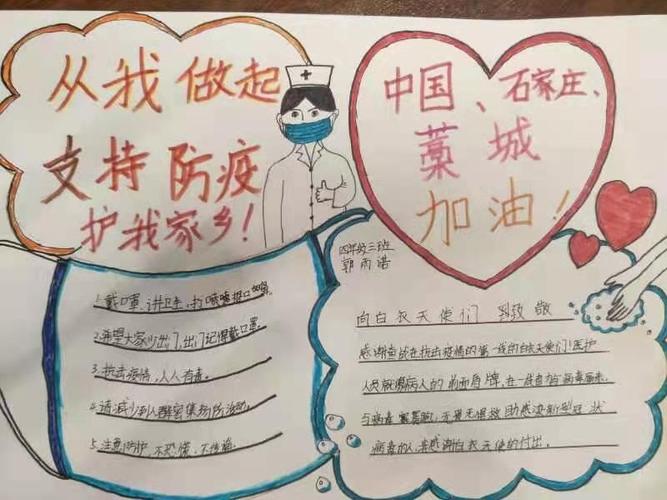 从我做起
支持防疫
护我家乡！
中国、石家庄、
藁城
加油！
四年级三班
郭雨诺
1.戴口罩,讲卫生,打喷嚏捂口鼻。
2.希望大家少出门,出门记得戴口罩。
3.抗击疫情,人人有责。
4.请减少到人群密集场所活动。
5.注意防护,不恐慌,不传谣。
向白衣天使们 致敬
感谢奋战在抗击疫情的第一线的白衣天使们!医护
人员就像病人的前面盾牌,在一线
与病毒 无畏无惧救助感染新型冠状
病毒的人,来感谢白衣天使的付出.